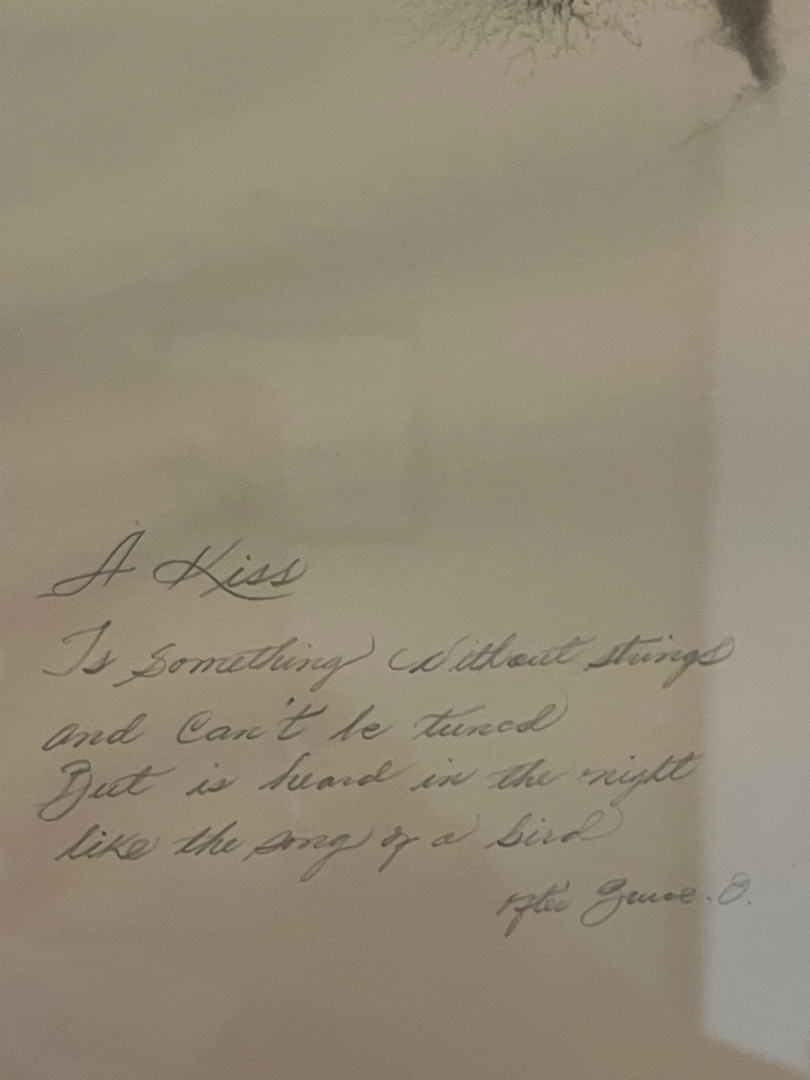 A Kiss
Is Something Without strings
and Can't be tuned
But is heard in the night
like the song of a bird
after O.